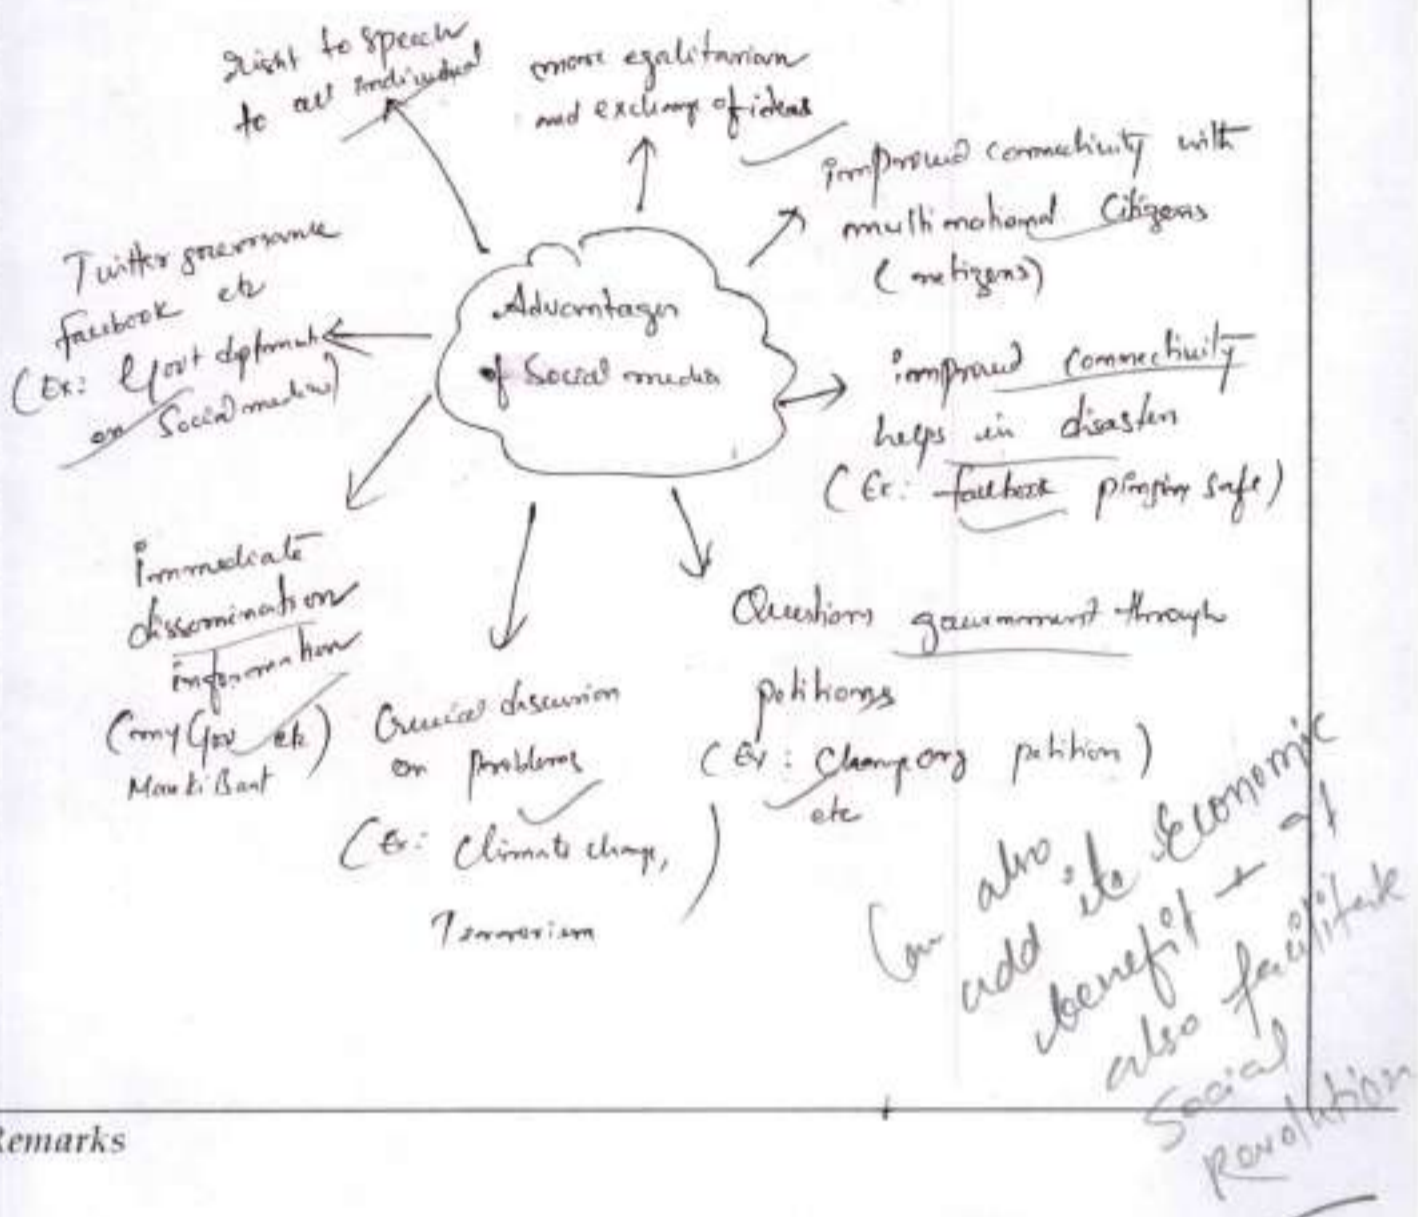 right to speech
to all individual
more egalitarian
and exchange of ideas
improved connectivity with
multi national Citizens
(netizens)
Twitter governance
facebook etc
(Ex: Govt
on Social media)
Advantages
of Social media
improved connectivity
helps in disaster
(Ex: facebook pinging safe)
immediate
dissemination
information
(myGov etc)
Man ki Baat
Crucial discussion
on problems
(Ex: Climate change,
Terrorism
)
Questions government through
petitions
(Ex: Change org petition)
etc
Can also
add its Economic
benefit + it
also facilitate
Social
Revolution
Remarks